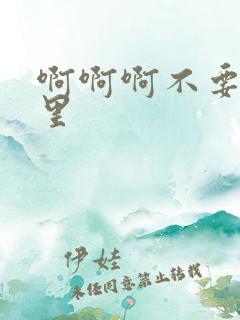 啊啊啊不要
里
伊娃
未经同意禁止转载